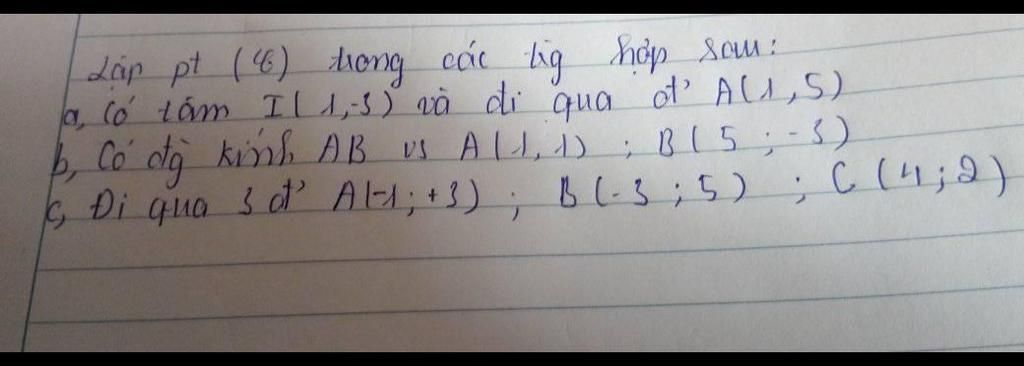 Lập pt (C) trong các trg hợp sau:
a, Có tâm I(1,-3) và đi qua đ' A(1,5)
b, Có đg kính AB vs A(1,1) ; B(5 ; -3)
c, Đi qua 3 đ' A(-1 ; +3) ; B(-3 ; 5) ; C(4 ; 2)